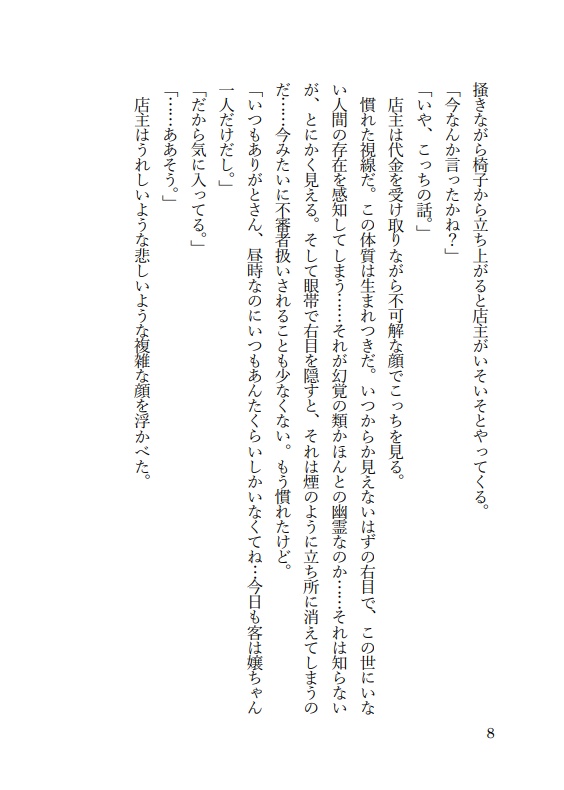 掻きながら椅子から立ち上がると店主がいそいそとやってくる。
「今なんか言ったかね？」
「いや、こっちの話。」
店主は代金を受け取りながら不可解な顔でこっちを見る。
慣れた視線だ。この体質は生まれつきだ。いつからか見えないはずの右目で、この世にいな
い人間の存在を感知してしまう……それが幻覚の類かほんとの幽霊なのか……それは知らない
が、とにかく見える。そして眼帯で右目を隠すと、それは煙のように立ち所に消えてしまうの
だ……今みたいに不審者扱いされることも少なくない。もう慣れたけど。
「いつもありがとさん、昼時なのにいつもあんたくらいしかいなくてね…今日も客は嬢ちゃん
一人だけだし。」
「だから気に入ってる。」
「……ああそう。」
店主はうれしいような悲しいような複雑な顔を浮かべた。
8